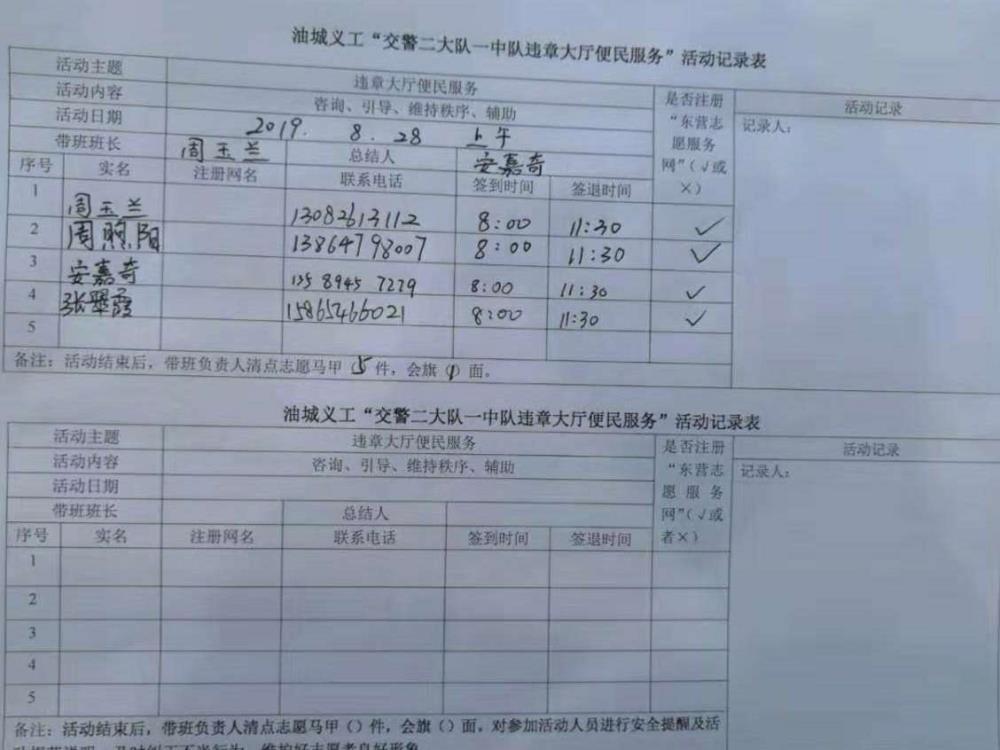 油城义工“交警二大队一中队违章大厅便民服务”活动记录表
活动主题 违章大厅便民服务 是否注册“东营志愿服务网”(√或×) 活动记录
活动内容 咨询、引导、维持秩序、辅助 记录人：
活动日期 2019. 8. 28 上午
带班班长 周玉兰 总结人 安嘉奇
序号 实名 注册网名 联系电话 签到时间 签退时间
1 周玉兰 13082613112 8:00 11:30 ✓
2 周煦阳 13864798007 8:00 11:30 ✓
3 安嘉奇 135 8945 7279 8:00 11:30 ✓
4 张翠霞 15865466021 8:00 11:30 ✓
5
备注：活动结束后，带班负责人清点志愿马甲 5 件，会旗(1)面。
油城义工“交警二大队一中队违章大厅便民服务”活动记录表
活动主题 违章大厅便民服务 是否注册“东营志愿服务网”(√或者×) 活动记录
活动内容 咨询、引导、维持秩序、辅助 记录人：
活动日期
带班班长 总结人
序号 实名 注册网名 联系电话 签到时间 签退时间
1
2
3
4
5
备注：活动结束后，带班负责人清点志愿马甲()件，会旗()面，对参加活动人员进行安全提醒及活